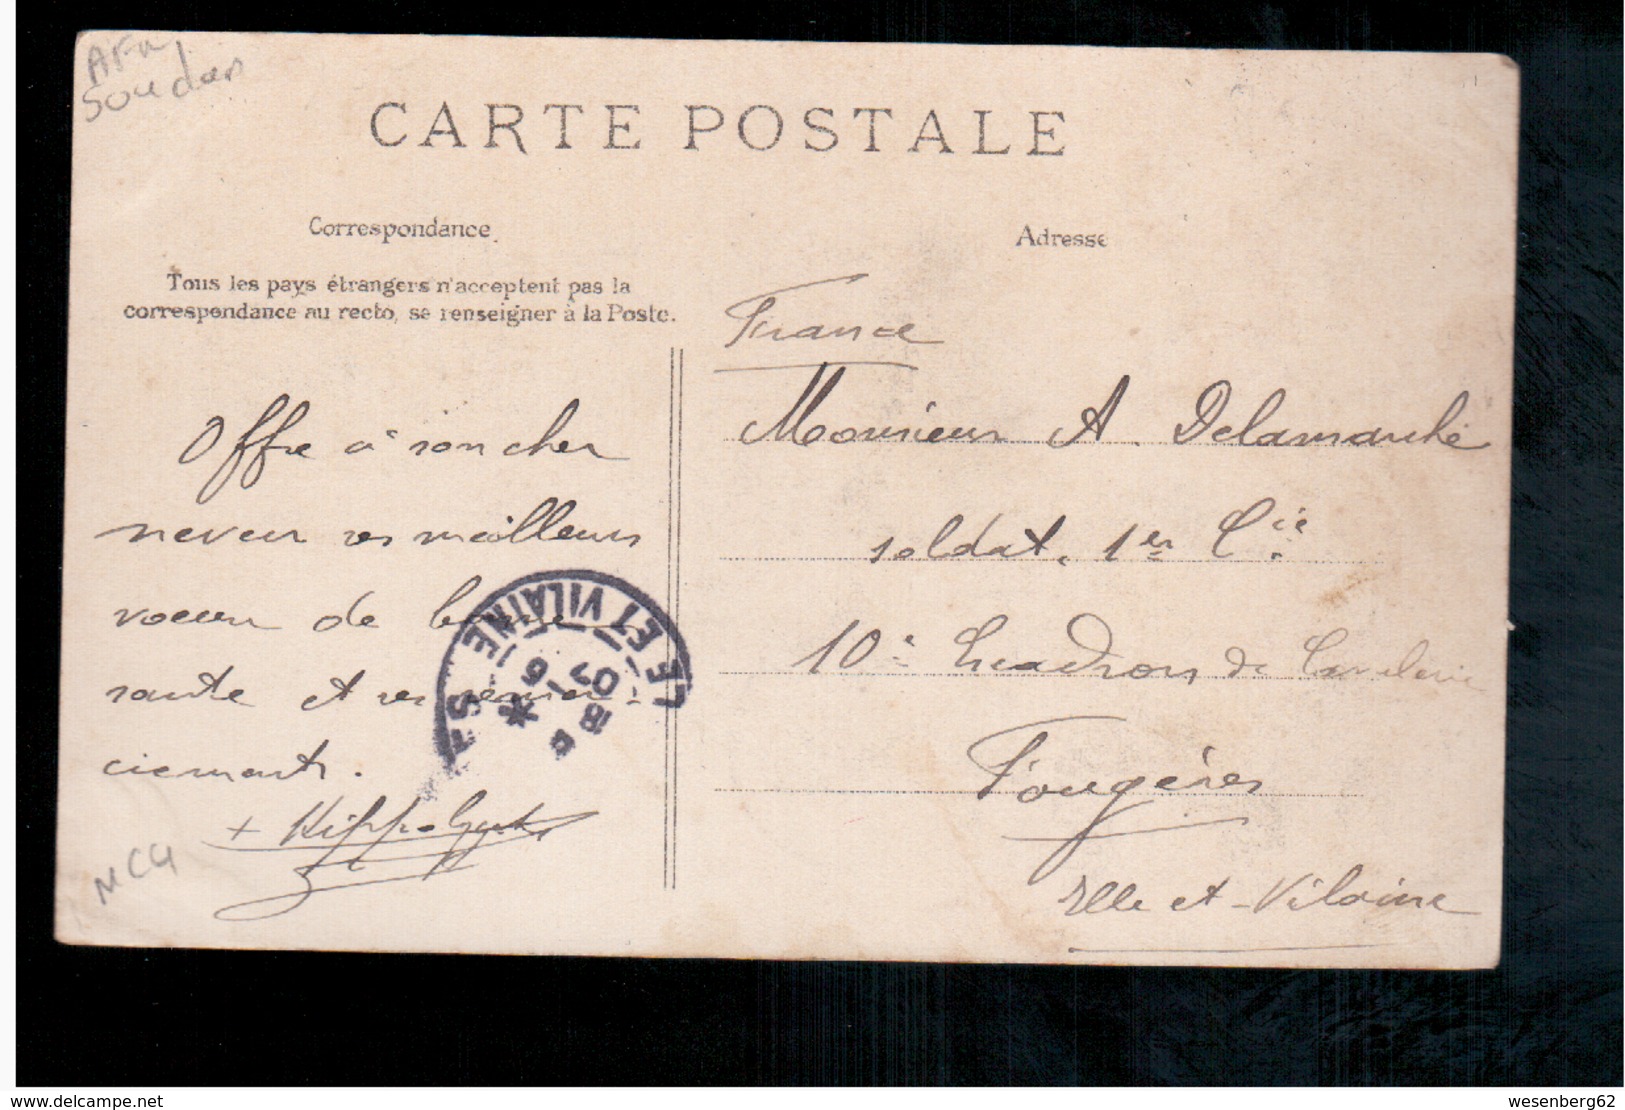 Soudan
CARTE POSTALE
Correspondance
Adresse
Tous les pays étrangers n'acceptent pas la
correspondance au recto, se renseigner à la Poste.
France
Monsieur A. Delamarche
soldat. 1er Cie
10e Escadrons de Cavalerie
Fougères
Ille et-Vilaine
Offre à son cher
neveu ses meilleurs
voeux de bonne
santé et ses remer-
ciements.
+ Hippolyte
ILLE ET VILAINE
18
6
07
MC4
www.delcampe.net
wesenberg62